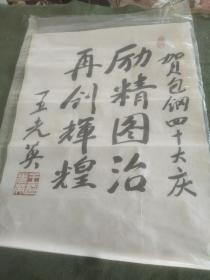 贺包钢四十大庆
励精图治
再创辉煌
王光英